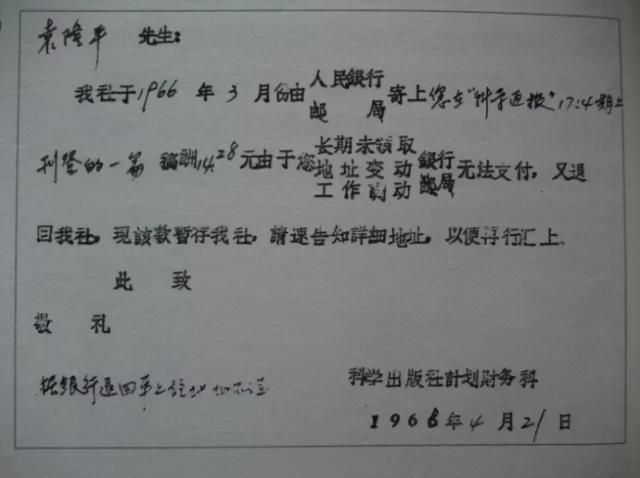 袁隆平 先生:
我社于1966年3月份由人民銀行
邮局寄上您在"科学通报"17:4期上
刊登的一篇 稿酬14.28元由于您
长期未領取
地址变动
工作調动
銀行
邮局无法支付，又退
回我社，现該款暫存我社，請速告知詳細地址，以便再行汇上。
此致
敬礼
科学出版社計划財务科
1966年4月21日